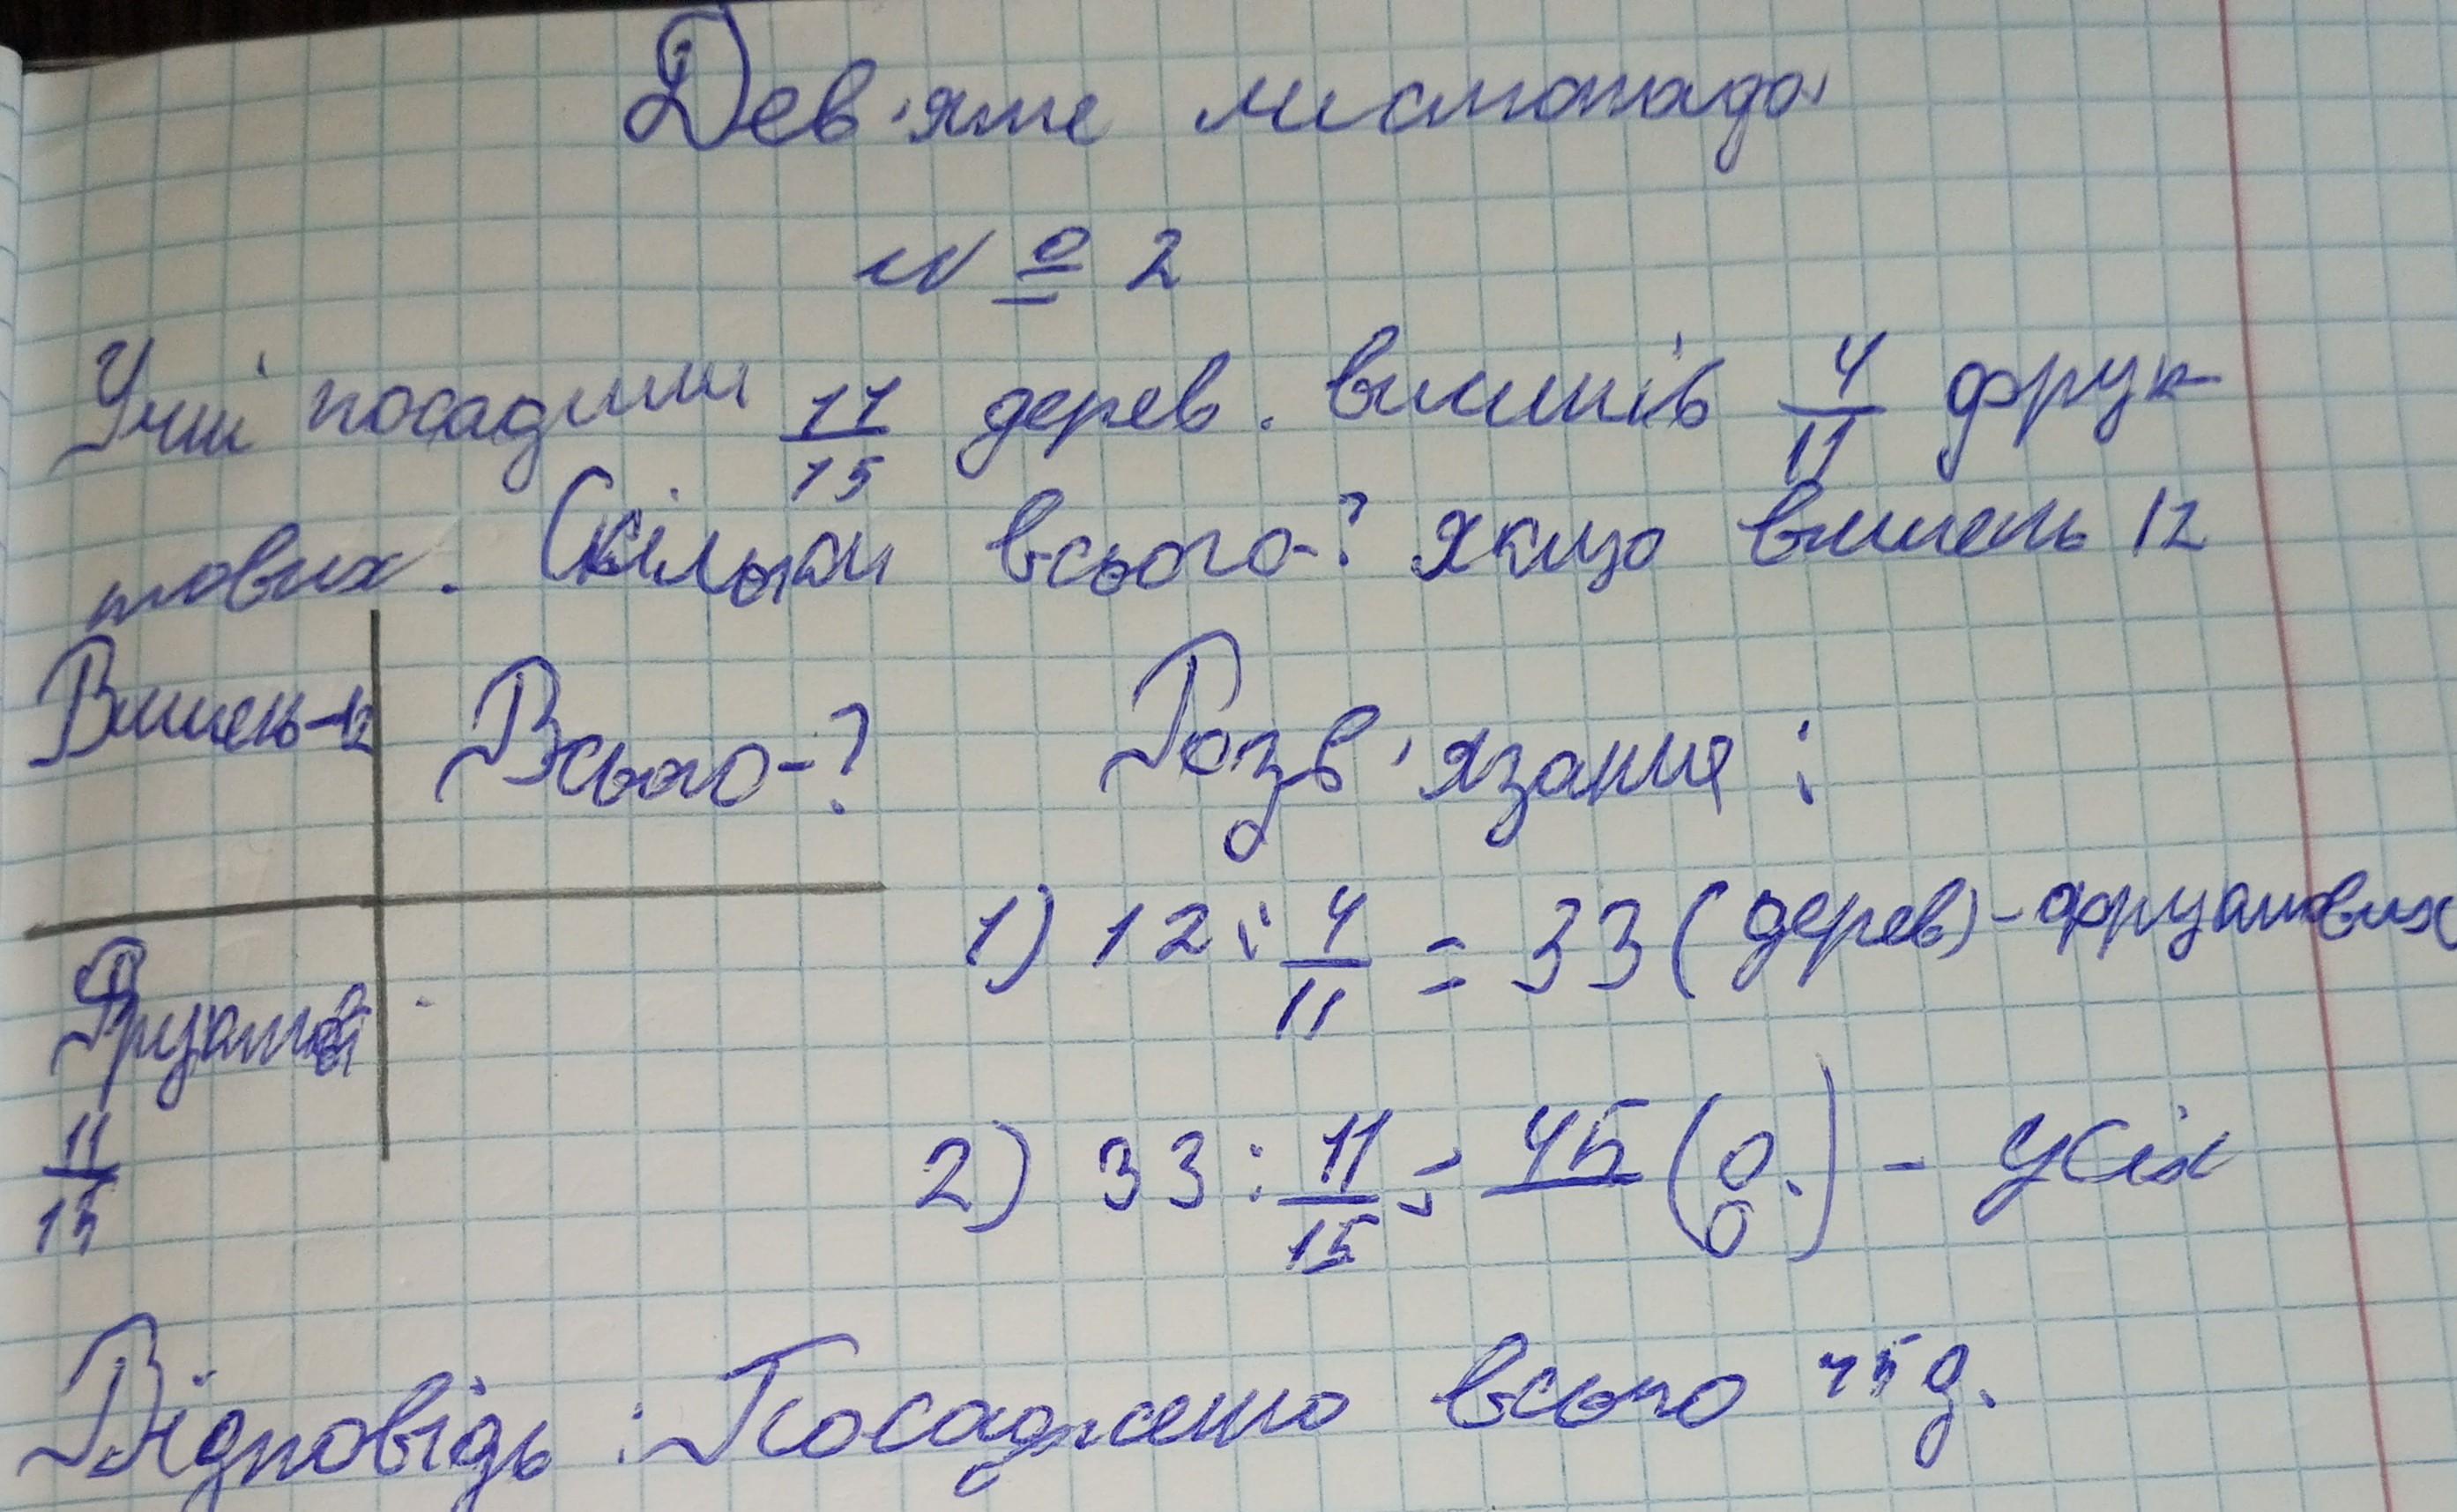 Дев'яте листопада
№ 2
Учні посадили 11/15 дерев. вишнів 4/11 фрук
тових. Скільки всього-? якщо вишень 12
Вишень-12 Всього-? Розв'язання:
1) 12 : 4/11 = 33 (дерев) - фруктових
Фруктові
11/15
2) 33 : 11/15 = 45 (д.) - усіх
Відповідь: Посаджено всього 45 д.